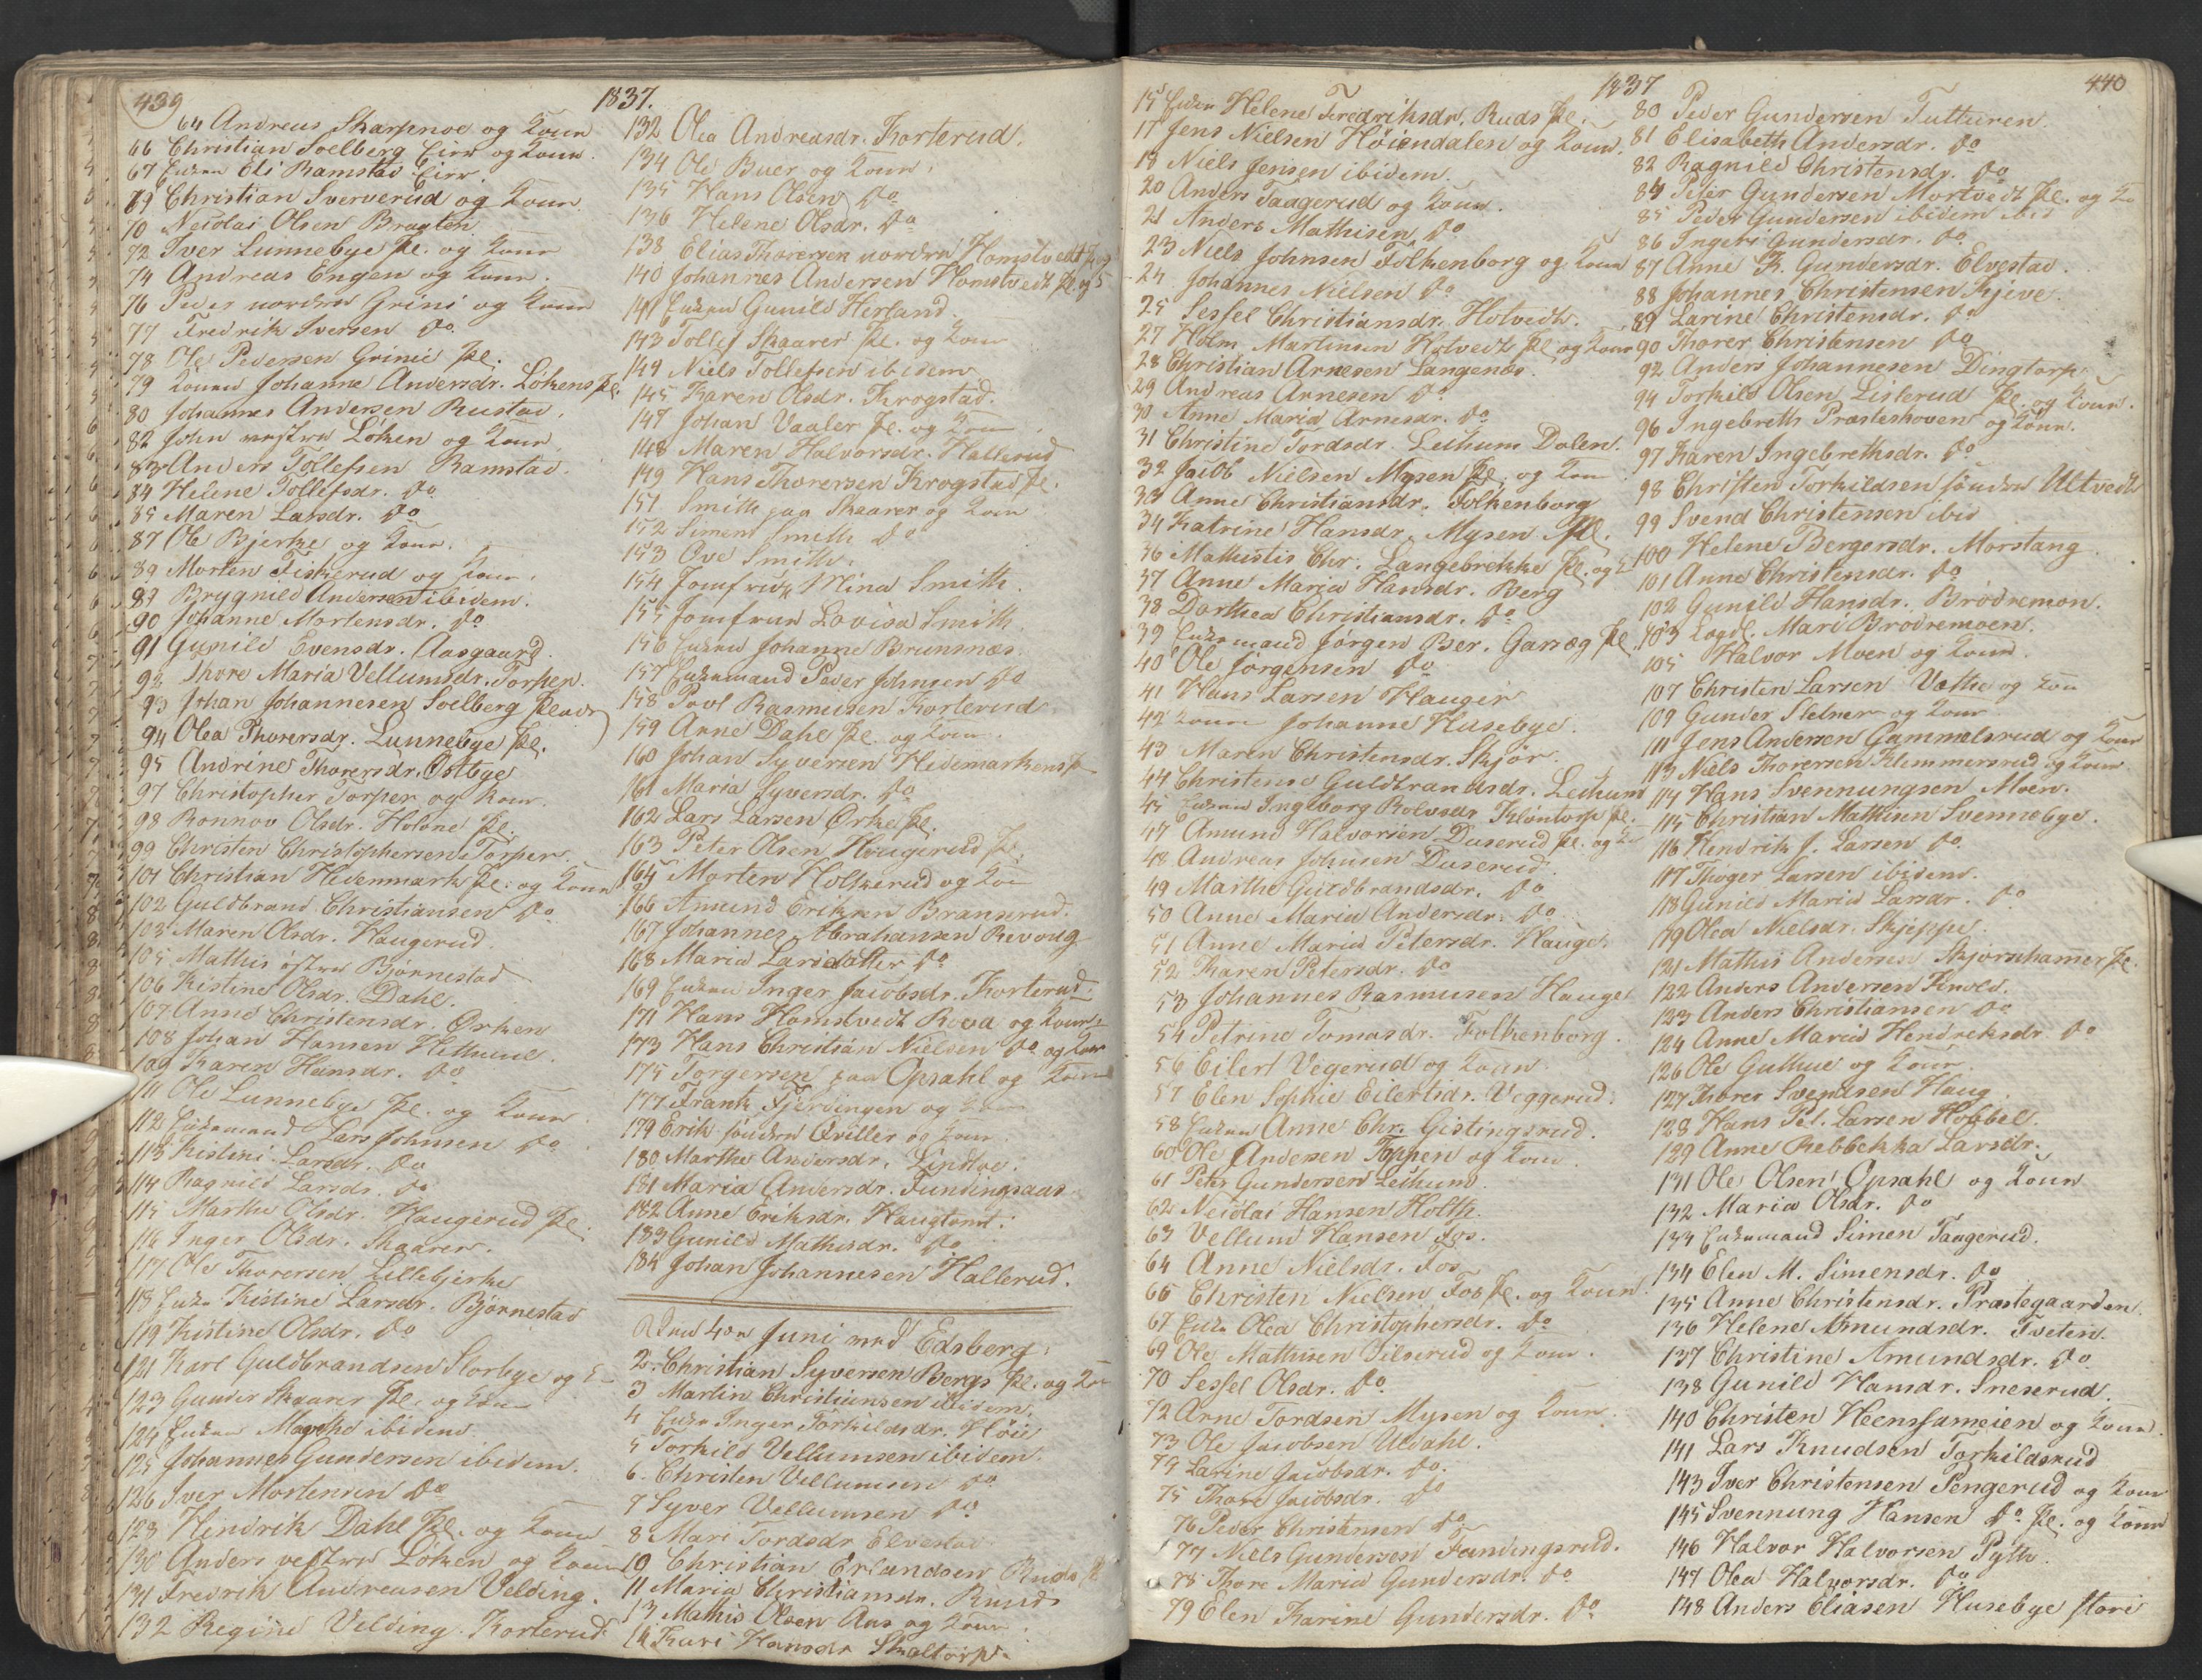 439
1837.
64 Andreas Skarpnoe og Koun
66 Christian Soelberg Eier og Koun.
67 Enken Eli Ramstad Eier.
69 Christian Sververud og Koun
70 Neiolai Olsen Bragten
72 Iver Lunnebye Pl. og Koun
74 Andreas Engen og Koun.
76 Peder nordre Grini og Koun
77 Fredrik Iversen do
78 Ole Pedersen Grinie Pl.
79 Konen Johanne Andersdr. Lökens Pl.
80 Johannes Andersen Rustad.
82 John vestre Löken og Koun
83 Anders Tollefsen Ramstad.
84 Helene Tollefsdr. do
85 Maren Larsdr. do
87 Ole Bjerke og Koun.
89 Morten Fiskerud og Koun.
89 Brygnild Andersen ibidem.
90 Johanne Mortensdr. do
91 Gunild Evensdr. Aasgaard.
92 Thore Maria Vellumsdr. Torper.
93 Johan Johannesen Soelberg
94 Olea Thorersdr. Lunnebye Pl.
95 Andrine Thorersdr. Östbye
97 Christopher Torper og Koun.
98 Ronnov Olsdr. Holone Pl.
99 Christen Christophersen Torper.
101 Christian Hedenmark Pl. og Koun
102 Guldbrand Christiansen do
103 Maren Olsdr. Haugerud.
105 Mathis östre Björnestad
106 Kistine Olsdr. Dahl.
107 Anne Christensdr. Örken
108 Johan Hansen Hethuul.
109 Karen Hansdr. do
111 Ole Lunnebye Pl. og Koun
112 Enkemand Lars Johnsen do
113 Kistine Larsdr. do
114 Ragnild Larsdr. do
115 Marthe Olsdr. Haugerud Pl.
116 Inger Olsdr. Skaarer.
117 Ole Thorersen Lillebjerke
118 Enke Kistine Larsdr. Björnestad
119 Kistine Olsdr. do
121 Karl Guldbrandsen Slorbye og K
123 Gunder Skaarer Pl. og Koun
124 Enken Marthe ibidem
125 Johannes Gundersen ibidem.
126 Iver Mortensen do
128 Hendrik Dahl Pl. og Koun
130 Anders vestre Löken og Koun
131 Fredrik Andreasen Velding.
132 Regine Velding. Korterud
132 Olea Andreasdr. Korterud.
134 Ole Buer og Koun.
135 Hans Olsen do
136 Helene Olsdr. do
138 Elias Thorersen nordre Homstvedt
140 Johannes Andersen Homstvedt Pl. og
141 Enken Gunild Herland.
143 Tollef Skaarer Pl. og Koun
144 Niels Tollefsen ibidem
145 Karen Olsdr. Krogstad.
147 Johan Vaaler Pl. og Koun
148 Maren Halvorsdr. Hallerud
149 Hans Thorersen Krogstad Pl.
151 Smith paa Skaarer og Koun
152 Simen Smith do
153 Ove Smith.
154 Jomfrue Mina Smith.
155 Jomfrue Lovisa Smith
156 Enken Johanne Brunsnæs.
157 Enkemand Peder Johnsen do
158 Povl Rasmusen Korterud
159 Arne Dahl Pl. og Koun.
160 Johan Syversen Hedemarkens
161 Maria Syversdr. do
162 Lars Larsen Örke Pl.
163 Peter Olsen Hougerud Pl.
164 Morten Holkerud og Koun
166 Amund Eriksen Branserud.
167 Johannes Abrahamsen Revoug
168 Maria Larsdatter do
169 Enken Inger Jacobsdr. Korterud.
171 Hans Homstvedt Reva og Koun
173 Hans Christian Nielsen do og Koun
175 Torgersen paa Opsahl og Koun
177 Frank Fjerdingen og Koun
179 Erik söndre Qviller og Koun
180 Marthe Andersdr. Lindtoe.
181 Maria Andersdr. Fundingsaas
182 Anne Eriksdr. Haugtomt.
183 Gunild Mathisdr. do
184 Johan Johannesen Hallerud.
Den 4de Juni ved Edsberg.
2 Christian Syversen Bergs Pl. og Koun
3 Martin Christiansen ibidem
4 Enke Inger Torkildsdr. Höie
5 Torkild Vellumsen ibidem.
6 Christen Vellumsen do
7 Syver Vellumsen do
8 Mari Tordsdr Elvestad.
10 Christian Erlandsen Ruds
11 Maria Christiansdr. Ruud
13 Mathis Olsen Aas og Koun.
14 Kari Hansdr Skaltorp.
1837
440
15 Enke Helene Fredriksdr. Ruds Pl.
17 Jens Nielsen Höiendalen og Koun.
18 Niels Jensen ibidem.
20 Anders Taagerud og Koun.
21 Anders Mathisen do
23 Niels Johnsen Folkenborg og Koun
24 Johannes Nielsen do
25 Sessel Christiansdr. Hotvedt.
27 Holm Martinsen Hotvedt Pl. og Koun
28 Christian Arnesen Langenæs.
29 Andreas Arnesen do
30 Anne Maria Arnesdr. do
31 Christine Tordsdr. Leikum Dalen.
32 Jacob Nielsen Mysen Pl. og Koun
33 Anne Christiansdr. Folkenborg
34 Katrine Hansdr. Mysen Pl.
36 Mathistis Chr. Langebrekke Pl. og K
37 Anne Maria Hansdr. Berg
38 Dorthea Christiansdr. do
39 Enkemand Jörgen Ber. Garseg Pl.
40 Ole Jörgensen do
41 Hans Larsen Hauger
42 Konen Johanne Husebye.
43 Maren Christensdr. Skjör.
44 Christense Guldbrandsdr. Leikum
45 Enken Ingeborg Rolvsdr Klöntorp Pl.
47 Amund Halvorsen Duserud Pl. og K
48 Andreas Johnsen Duserud.
49 Marthe Guldbrandsdr. do
50 Anne Maria Andersdr. do
51 Anne Maria Petersdr. Hauge.
52 Karen Petersdr. do
53 Johannes Rasmusen Hauge
54 Petrine Tomasdr. Folkenborg.
56 Eilert Vegerud og Koun.
57 Elen Sophie Eilertsdr. Veggerud.
58 Enken Anne Chr. Gistingsrud.
60 Ole Andersen Toppen og Koun.
61 Peter Gundersen Leikum.
62 Neiolai Hansen Holth.
63 Vellum Hansen Fos.
64 Anne Nielsdr. Fos
66 Christen Nielsen Fos Pl. og Koun.
67 Enke Olea Christophersdr. do
69 Ole Mathisen Tilserud og Koun.
70 Sessel Olsdr. do
72 Arne Tordsen Mysen og Koun.
73 Ole Jacobsen Uldahl.
74 Larine Jacobsdr. do.
75 Thore Jacobsdr. do
76 Peder Christensen do
77 Niels Gundersen Fundingsrud.
78 Thore Maria Gundersdr. do
79 Elen Karine Gundersdr. do
80 Peder Gundersen Tutturen.
81 Elisabeth Andersdr. do
82 Ragnild Christensdr. do
84 Peder Gundersen Mortvedt Pl. og K
85 Peder Gundersen ibidem ibid
86 Ingeri Gundersdr. do
87 Anne K. Gundersdr. Elvestad.
88 Johannes Christensen Kjeve.
89 Larine Christensdr. do
90 Thorer Christensen do
92 Anders Johannesen Dingtorp
94 Torkild Olsen Lislerud Pl. og Koun.
96 Ingebreth Præsteshoven og Koun.
97 Karen Ingebrethsdr. do
98 Christen Torkildsen söndre Ultvedt
99 Svend Christensen ibid
100 Helene Bergersdr. Morstang
101 Anne Christensdr. do
102 Gunild Hansdr. Brödremoen.
103 Logd. Mari Brödremoen.
105 Halvor Moen og Koun.
107 Christen Larsen Vathe og Koun
109 Gunder Slelner og Koun
111 Jens Andersen Gammelsrud og Koun
113 Niels Thorersen Klemmersrud og Koun
114 Hans Svennungsen Moen.
115 Christian Mathisen Svennebye.
116 Hendrik J. Larsen do.
117 Thoger Larsen ibidem.
118 Gunild Maria Larsdr. do
119 Olea Nielsdr. Skjeppe.
121 Mathis Andersen Skjorshamer Pl.
122 Anders Andersen Kinold.
123 Anders Christiansen do
124 Anne Maria Hendriksdr do
126 Ole Guthue og Koun.
127 Thorer Svendsen Haug.
128 Hans Pet. Larsen Hobbel.
129 Anne Rebbekka Larsdr.
131 Ole Olsen Opsahl og Koun
132 Maria Olsdr. do
133 Enkemand Simen Taagerud.
134 Elen M. Simensdr. do
135 Anne Christensdr. Præstegaarden.
136 Helene Amundsdr. Tveten.
137 Christine Amundsdr. do
138 Gunild Hansdr. Sneserud.
140 Christen Heensameien og Koun.
141 Lars Knudsen Torkildsrud
143 Iver Christensen Sengerud og Koun
145 Svennung Hansen do Pl. og Koun
146 Halvor Halvorsen Pytte.
147 Olea Halvorsdr. do
148 Anders Eliasen Husebye store